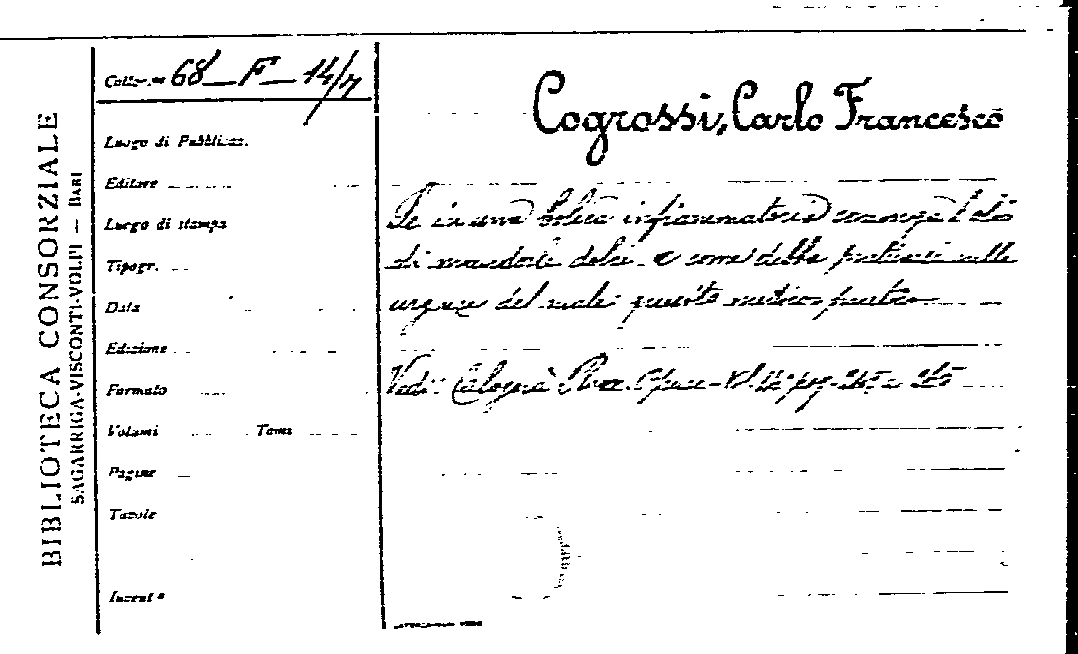 BIBLIOTECA CONSORZIALE
SAGARRIGA-VISCONTI-VOLPI — BARI
68 — F — 14/7
Luogo di Pubblicaz.
Editore
Luogo di stampa
Tipogr.
Data
Edizione
Formato
Volumi Tomi
Pagine
Tavole
Cogrossi, Carlo Francesco
Se in una colica infiammatoria convenga l'olio
di mandorle dolci e come debba
urgenza del male questo medico
Vedi: Calogerà Racc. Opusc.